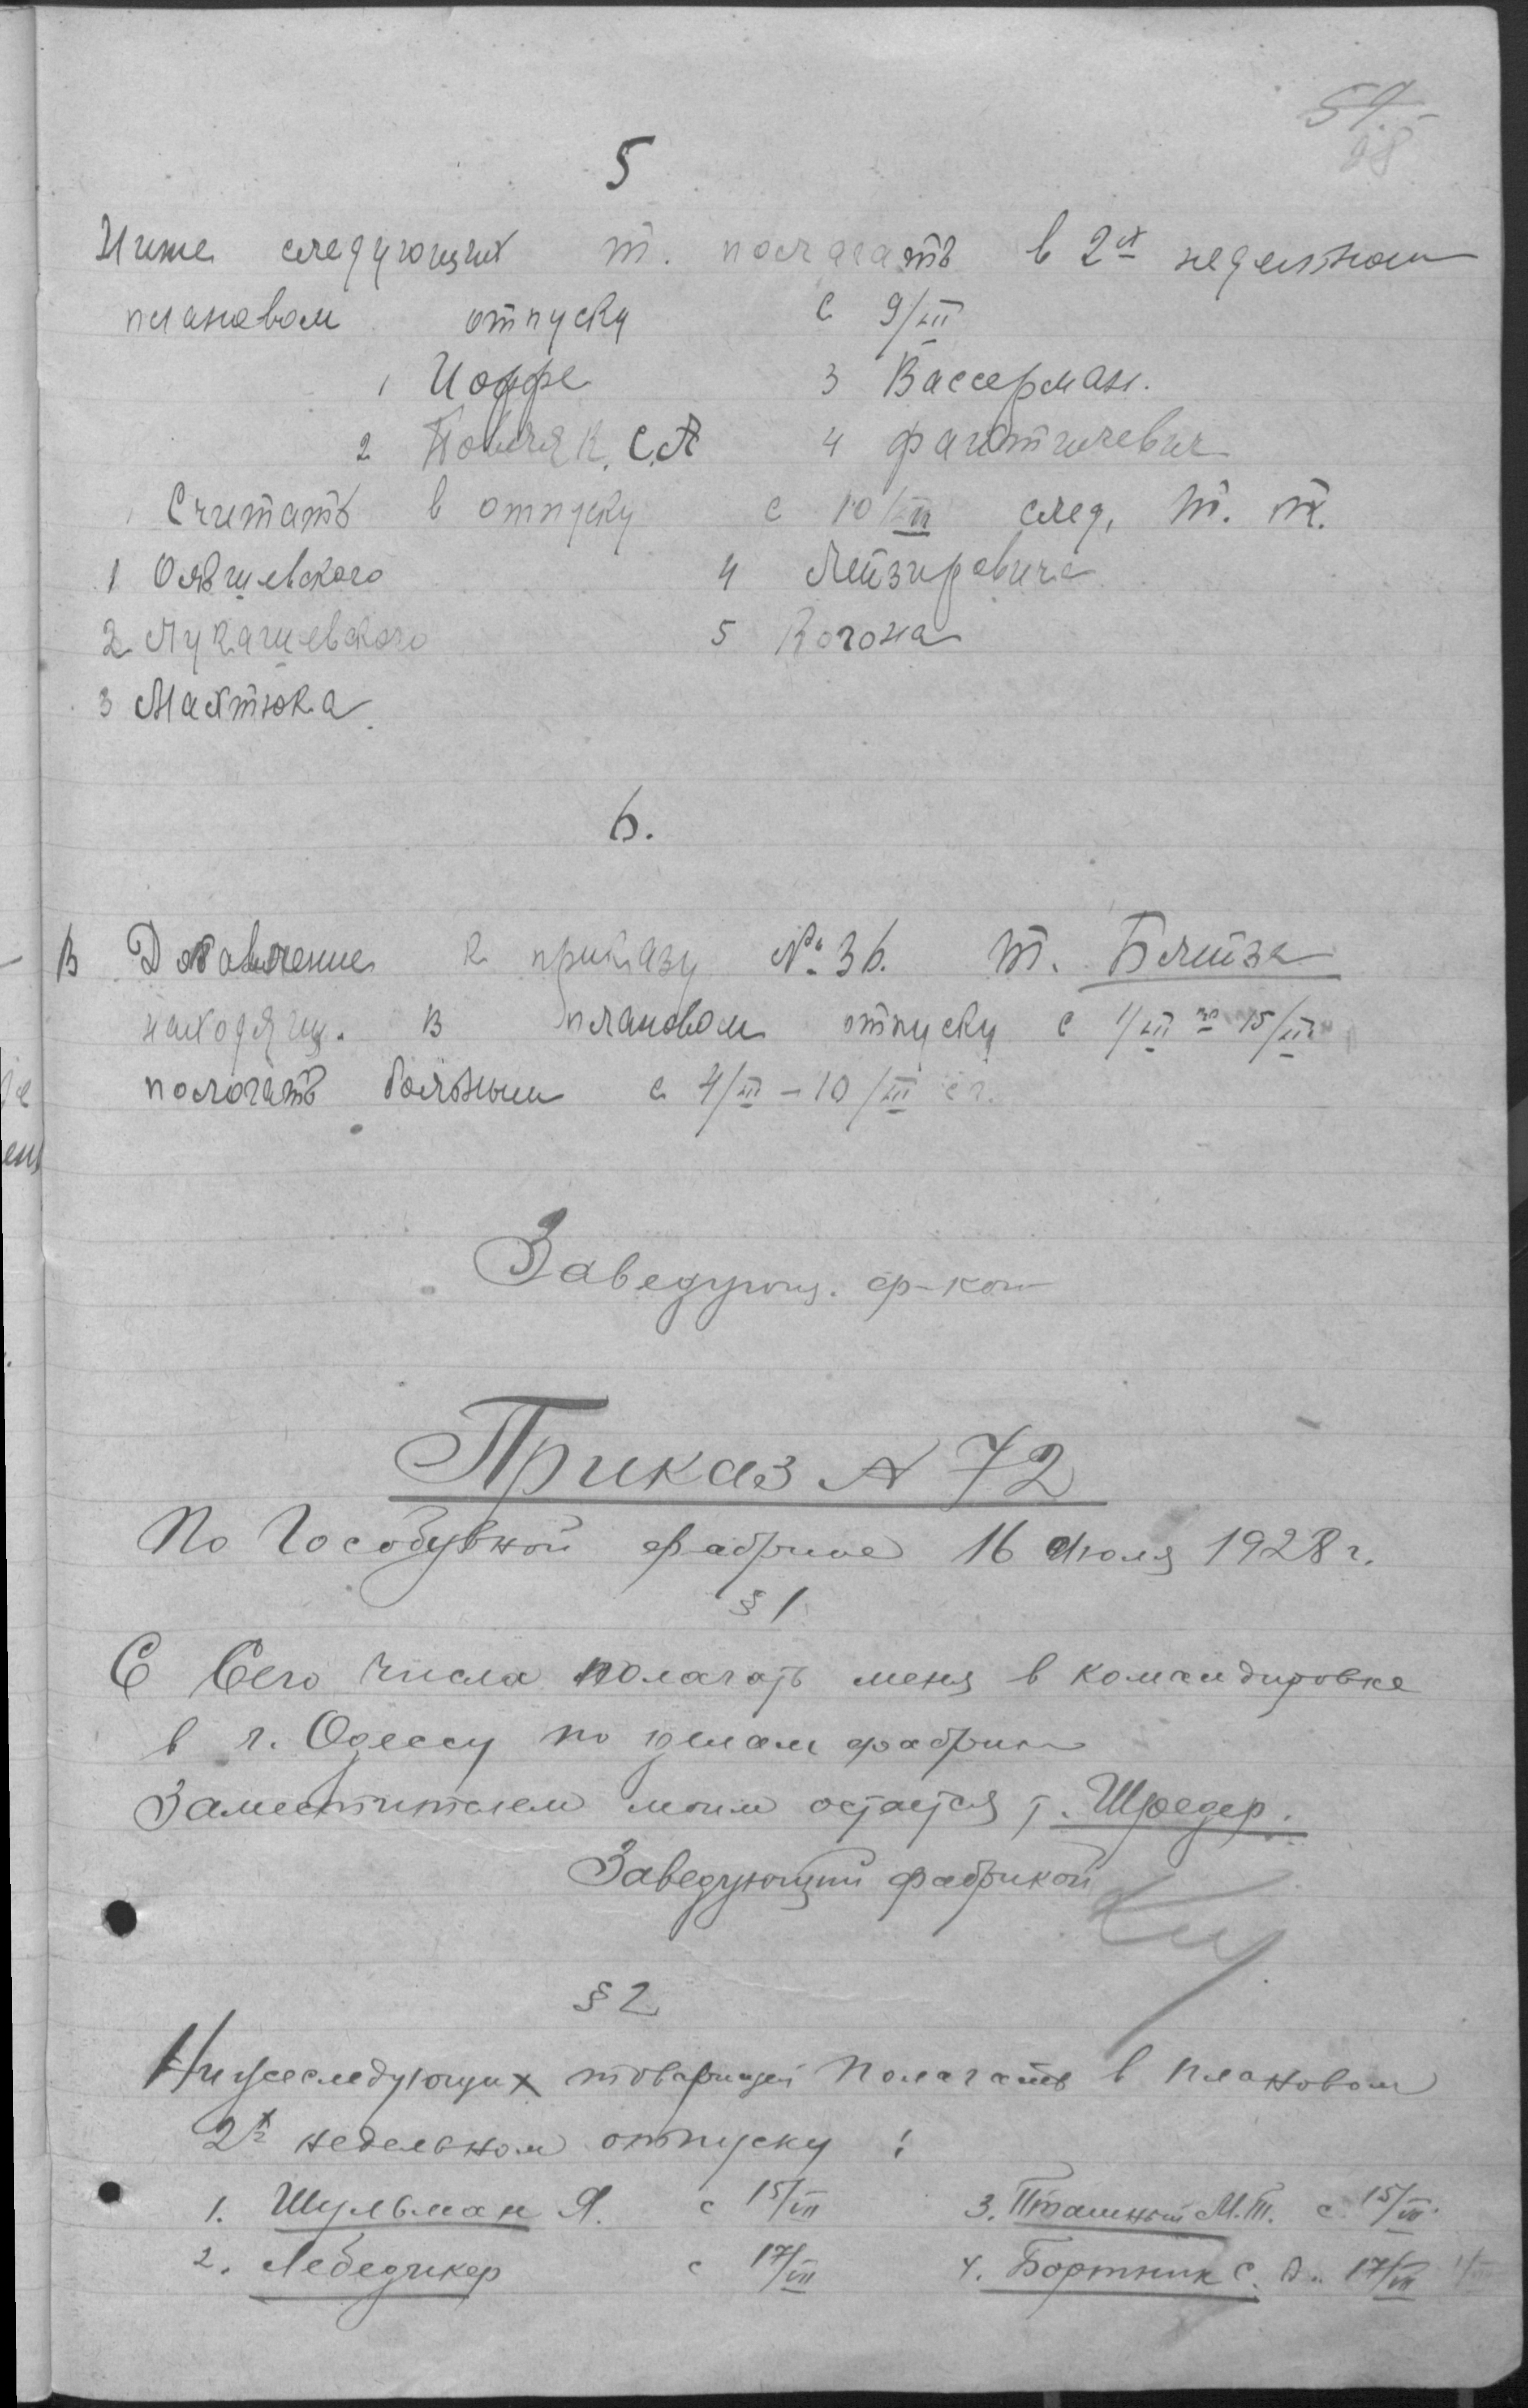 54
28
5
Ниже следующих т. полагать в 2х неделном
плановом отпуску с 9/VII
1 Иоффе 3 Вассерман.
2 Поляк. С.А 4 Файтилевич
Считать в отпуску с 10/VII след. т. т.
1 Ольшевского 4 Лейзеровича
2 Лукашевского 5 Когона
3 Махтюка
6.
В Добавление к приказу № 36. т. Блейза
находящ. в плановом отпуску с 1/VII по 15/VII
пологать больным с 4/VII – 10/VII с г.
Заведующ. ф-кой
Приказ № 72
По Гособувной фабрике 16 Июля 1928 г.
§ 1
С Сего числа полагать меня в командировке
в г. Одессу по делам фабрики
Заместителем моим остается т. Шредер.
Заведующий фабрикой
§ 2
Нижеследующих товарищей полагать в плановом
2х недельном отпуску :
1. Шульман Я. с 15/VII 3. Пташный М.Т. с 15/VII
2. Лебедикер с 17/VII 4. Бортник С. 17/VII